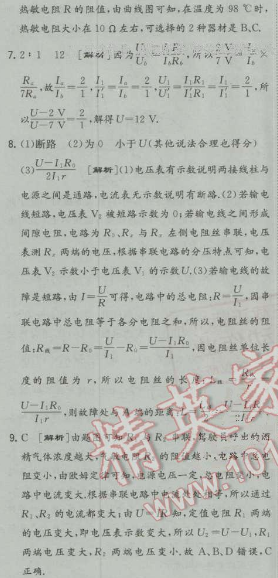 热敏电阻R的阻值,由曲线图可知,在温度为98℃时,
热敏电阻大小在10Ω左右,可选择的2种器材是B、C.
7. 2∶1 12 [解析]因为
,解得U=12 V.
8. (1)断路 (2)为0 小于U(其他说法合理也得分)
(3)(U-I₁R₀)/(2I₁r) [解析](1)电压表有示数说明两接线柱与
电源之间是通路,电流表无示数说明有断路.(2)若输电
线短路,电压表V₂被短路示数为0;若输电线之间形成
间隙电阻,电路为R₀、R₁与R₂左侧电阻丝串联,电压
表测R₂两端的电压,根据串联电路的分压特点可知,电
压表V₂示数小于电压表V₁的示数U.(3)若输电线的故
障是短路,由I=U/R可得,电路中的总电阻:R=U/I₁,因串
联电路中总电阻等于各分电阻之和,所以,电阻丝的阻
值:R线=R-R₀=U/I₁-R₀=(U-I₁R₀)/I₁,因电阻丝单位长
度的阻值为r,所以电阻丝的长度:
(U-I₁R₀)/(I₁r),则故障处与 的距离
9. C [解析]由题图可知R₁与R₂串联,驾驶员呼出的酒
精气体浓度越大, 的阻值越小,电路中总电
阻变小,由欧姆定律可知,电源电压一定,电阻变小,电
路中电流变大.根据串联电路中电流处处相等,所以通过
R₁、R₂的电流都变大;由U=IR知,定值电阻R₁两端
的电压变大,即电压表示数变大,所以U₂=U-U₁,R₁
两端电压变大,R₂两端电压变小.故A、B、D错误,C
正确.
精英家